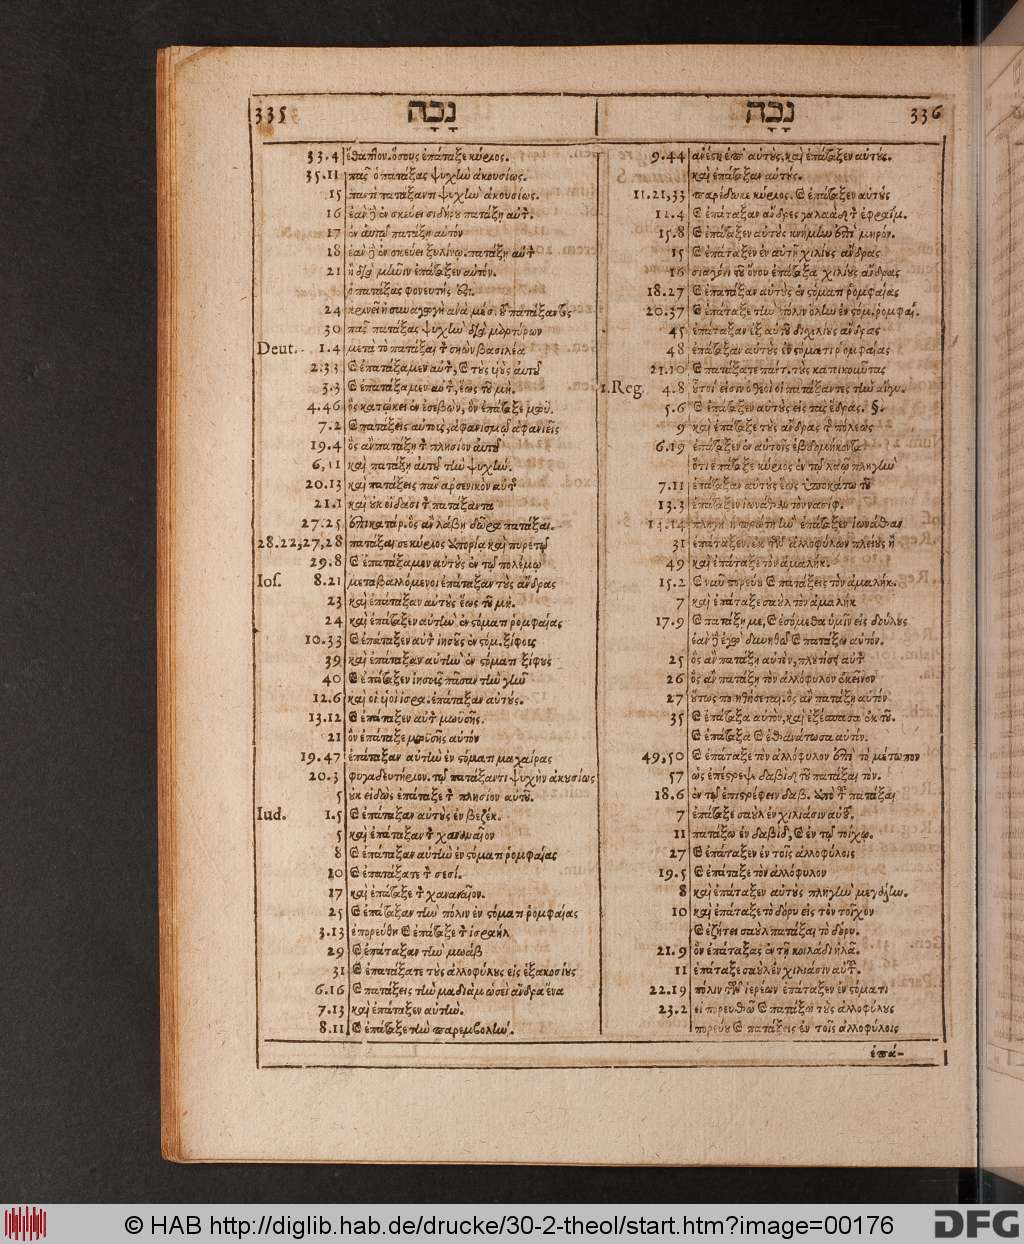 335 נָכָה
33.4 ἔθαπτον. ὅσους ἐπάταξε κύριος.
35.11 πᾶς ὁ πατάξας ψυχὴν ἀκουσίως.
15 παντὶ πατάξαντι ψυχὴν ἀκουσίως.
16 ἐὰν δὲ ἐν σκεύει σιδήρου πατάξῃ αὐτ.
17 ἐν αὐτῷ πατάξῃ αὐτὸν
18 ἐὰν δὲ ἐν σκεύει ξυλίνῳ. πατάξῃ αὐτ
21 ἢ διὰ μῆνιν ἐπάταξεν αὐτόν.
ὁ πατάξας φονευτής ἐστι.
24 κρινεῖ ἡ συναγωγὴ ἀνὰ μέσ. τοῦ πατάξαντος
30 πᾶς πατάξας ψυχὴν διὰ μαρτύρων
Deut. 1.4 μετὰ τὸ πατάξαι τὸν σηὼν βασιλέα
2.33 καὶ ἐπατάξαμεν αὐτ, καὶ τοὺς υἱοὺς αὐτοῦ
3.3 καὶ ἐπατάξαμεν αὐτ, ἕως τοῦ μὴ.
4.46 ὃς κατῴκει ἐν ἐσεβών, ὃν ἐπάταξε μωϋ.
7.2 καὶ πατάξεις αὐτοὺς, ἀφανισμῷ ἀφανιεῖς
19.4 ὃς ἂν πατάξῃ τὸν πλησίον αὐτοῦ
6,11 καὶ πατάξῃ αὐτοῦ τὴν ψυχήν.
20.13 καὶ πατάξεις πᾶν ἀρσενικὸν αὐτ
21.1 καὶ οὐκ οἴδασι τὸν πατάξαντα
27.25 ἐπικατάρ. ὃς ἂν λάβῃ δῶρα πατάξαι.
28.22,27,28 πατάξαι σε κύριος ἀπορίᾳ καὶ πυρετῷ
29.8 καὶ ἐπατάξαμεν αὐτοὺς ἐν τῷ πολέμῳ
Ios. 8.21 μεταβαλλόμενοι ἐπάταξαν τοὺς ἄνδρας
23 καὶ ἐπάταξαν αὐτοὺς ἕως τοῦ μὴ.
24 καὶ ἐπάταξεν αὐτὴν ἐν στόματι ῥομφαίας
10.33 καὶ ἐπάταξεν αὐτ ἰησοῦς ἐν στόμ. ξίφους
39 καὶ ἐπάταξαν αὐτὴν ἐν στόματι ξίφους
40 καὶ ἐπάταξεν ἰησοῦς πᾶσαν τὴν γῆν
12.6 καὶ οἱ υἱοὶ ἰσρα. ἐπάταξαν αὐτούς.
13.12 καὶ ἐπάταξεν αὐτ μωυσῆς.
21 ὃν ἐπάταξε μωϋσῆς αὐτὸν
19.47 ἐπάταξαν αὐτὴν ἐν στόματι μαχαίρας
20.3 φυγαδευτήριον. τῷ πατάξαντι ψυχὴν ἀκουσίως
5 οὐκ εἰδὼς ἐπάταξε τὸν πλησίον αὐτοῦ.
Iud. 1.5 καὶ ἐπάταξαν αὐτοὺς ἐν βεζέκ.
5 καὶ ἐπάταξαν τὸν χαναναῖον
8 καὶ ἐπάταξαν αὐτὴν ἐν στόματι ῥομφαίας
10 καὶ ἐπατάξατε τὸν σεσί.
17 καὶ ἐπάταξε τὸν χαναναῖον.
25 καὶ ἐπάταξαν τὴν πόλιν ἐν στόματι ῥομφαίας
3.13 ἐπορεύθη καὶ ἐπάταξε τὸν ἰσραὴλ
29 καὶ ἐπάταξαν τὴν μωάβ
31 καὶ ἐπατάξατε τοὺς ἀλλοφύλους εἰς ἑξακοσίους
6.16 καὶ πατάξεις τὴν μαδιὰμ ὡσεὶ ἄνδρα ἕνα
7.13 καὶ ἐπάταξεν αὐτὴν.
8.11 καὶ ἐπάταξε τὴν παρεμβολήν.
נָכָה 336
9.44 ἀνέστη ἐπ' αὐτοὺς, καὶ ἐπάταξεν αὐτούς.
καὶ ἐπάταξαν αὐτούς.
11.21,33 παρέδωκε κύριος. καὶ ἐπάταξεν αὐτούς
12.4 καὶ ἐπάταξαν ἄνδρες γαλαὰδ τὸν ἐφραΐμ.
15.8 καὶ ἐπάταξεν αὐτοὺς κνήμην ἐπὶ μηρόν.
15 καὶ ἐπάταξεν ἐν αὐτῇ χιλίους ἄνδρας
16 σιαγόνι τοῦ ὄνου ἐπάταξα χιλίους ἄνδρας
18.27 καὶ ἐπάταξαν αὐτοὺς ἐν στόματι ῥομφαίας
20.37 καὶ ἐπάταξε τὴν πόλιν ὅλην ἐν στόμ. ῥομφαί.
45 ἐπάταξαν ἐξ αὐτοῦ δισχιλίους ἄνδρας
48 ἐπάταξαν αὐτοὺς ἐν στόματι ῥομφαίας
21.10 καὶ πατάξατε πάντ. τοὺς κατοικοῦντας
1.Reg. 4.8 οὗτοί εἰσιν ὁ θεοὶ οἱ πατάξαντες τὴν αἴγυ.
5.6 καὶ ἐπάταξεν αὐτοὺς εἰς τὰς ἕδρας. §.
9 καὶ ἐπάταξε τοὺς ἄνδρας τῆς πόλεως
6.19 ἐπάταξεν ἐν αὐτοῖς ἑβδομήκοντα
ὅτι ἐπάταξε κύριος ἐν τῷ λαῷ πληγὴν
7.11 ἐπάταξαν αὐτοὺς ἕως ὑποκάτω τοῦ
13.3 ἐπάταξεν ἰωνάθαν τὸν νασίφ.
14.14 πληγὴ ἡ πρώτη ἣν ἐπάταξεν ἰωνάθαν
31 ἐπάταξεν. ἐκ τῶν ἀλλοφύλων πλείους ἢ
49 καὶ ἐπάταξε τὸν ἀμαλήκ.
15.2 καὶ νῦν πορεύου καὶ πατάξεις τὸν ἀμαλήκ.
7 καὶ ἐπάταξε σαοὺλ τὸν ἀμαλήκ
17.9 καὶ πατάξῃ με, καὶ ἐσόμεθα ὑμῖν εἰς δούλους
ἐὰν δὲ ἐγὼ δυνηθῶ καὶ πατάξω αὐτόν.
25 ὃς ἂν πατάξῃ αὐτὸν, πλουτίσει αὐτ
26 ὃς ἂν πατάξῃ τὸν ἀλλόφυλον ἐκεῖνον
27 οὕτως ποιηθήσεται. ὃς ἂν πατάξῃ αὐτόν
35 καὶ ἐπάταξα αὐτὸν, καὶ ἐξέσπασα ἐκ τοῦ.
καὶ ἐπάταξα καὶ ἐθανάτωσα αὐτόν.
49,50 καὶ ἐπάταξε τὸν ἀλλόφυλον ἐπὶ τὸ μέτωπον
57 ὡς ἐπέστρεψε δαβὶδ τοῦ πατάξαι τὸν.
18.6 ἐν τῷ ἐπιστρέφειν δαβ. ἀπὸ τοῦ πατάξαι
7 ἐπάταξε σαοὺλ ἐν χιλιάσιν αὐτοῦ.
11 πατάξω ἐν δαβὶδ, καὶ ἐν τῷ τοίχῳ.
27 καὶ ἐπάταξεν ἐν τοῖς ἀλλοφύλοις
19.5 καὶ ἐπάταξε τὸν ἀλλόφυλον
8 καὶ ἐπάταξεν αὐτοὺς πληγὴν μεγάλην.
10 καὶ ἐπάταξε τὸ δόρυ εἰς τὸν τοῖχον
καὶ ἐζήτει σαοὺλ πατάξαι τὸ δόρυ.
21.9 ὃν ἐπάταξας ἐν τῇ κοιλάδι ἠλᾶ.
11 ἐπάταξε σαοὺλ ἐν χιλιάσιν αὐτοῦ.
22.19 πόλιν τῶν ἱερέων ἐπάταξεν ἐν στόματι
23.2 εἰ πορευθῶ καὶ πατάξω τοὺς ἀλλοφύλους
πορεύου καὶ πατάξεις ἐν τοῖς ἀλλοφύλοις
ἐπά-
© HAB http://diglib.hab.de/drucke/30-2-theol/start.htm?image=00176
DFG